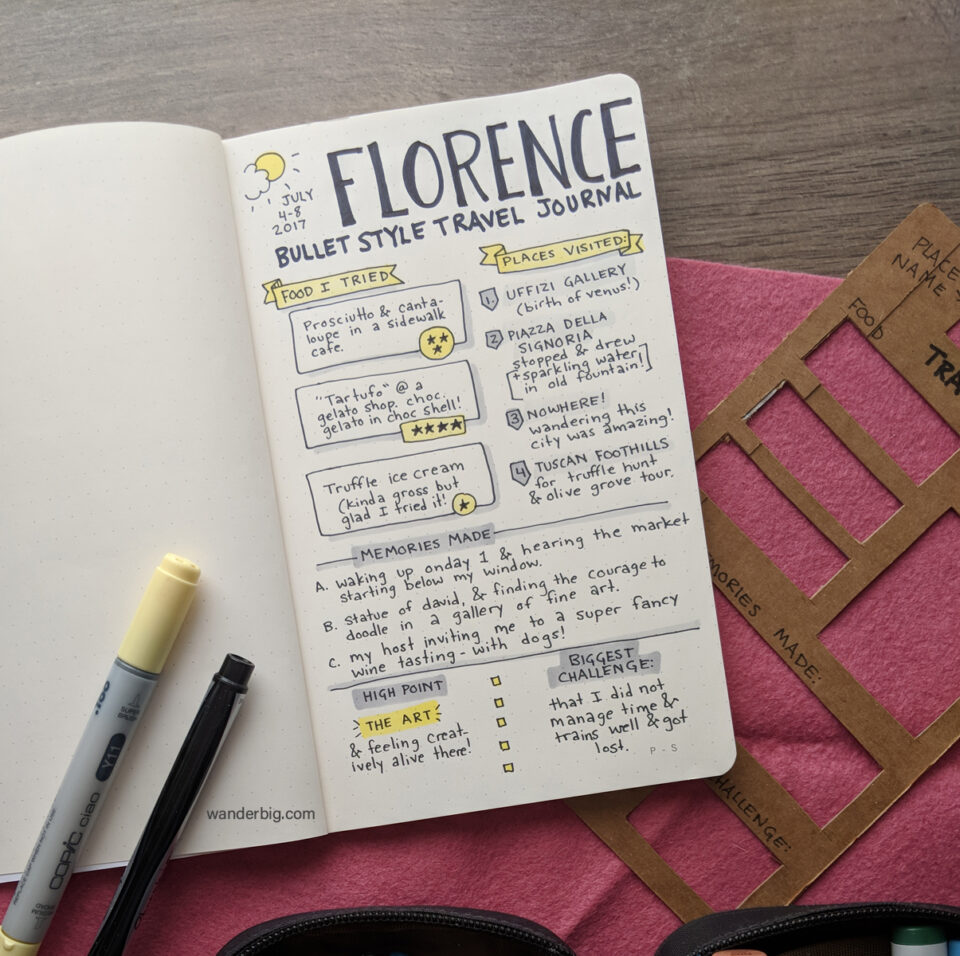 FLORENCE
JULY
4-8
2017
BULLET STYLE TRAVEL JOURNAL
FOOD I TRIED
Prosciutto & canta-
loupe in a sidewalk
cafe.
"Tartufo" @ a
gelato shop. choc.
gelato in choc shell!
Truffle ice cream
(kinda gross but
glad I tried it!
PLACES VISITED:
1. UFFIZI GALLERY
(birth of venus!)
2 PIAZZA DELLA
SIGNORIA
stopped & drew
+sparkling water
in old fountain!
3 NOWHERE!
wandering this
city was amazing!
4 TUSCAN FOOTHILLS
for truffle hunt
& olive grove tour.
MEMORIES MADE
A. waking up onday 1 & hearing the market
starting below my window.
B. statue of david, & finding the courage to
doodle in a gallery of fine art.
C. my host inviting me to a super fancy
wine tasting - with dogs!
HIGH POINT
THE ART
& feeling creat-
ively alive there!
BIGGEST
CHALLENGE:
that I did not
manage time &
trains well & got
lost.
P-S
wanderbig.com
COPIC ciao
Y11
PLACE
NAME
FOOD
TRA
MORIES MADE:
HALLENGE: